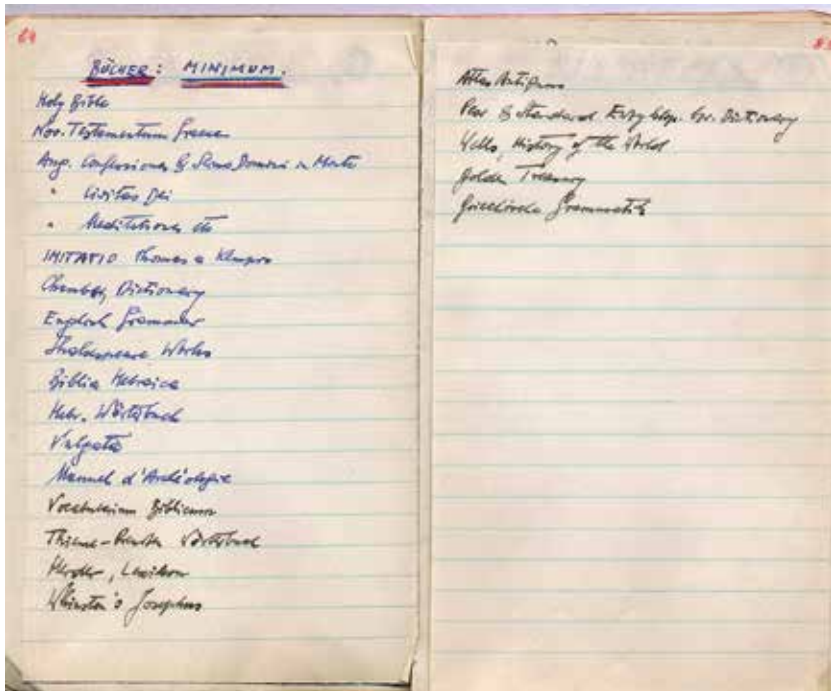 64
BÜCHER: MINIMUM.
Holy Bible
Nov. Testamentum Graece
Aug. Confessiones & Sermo Domini in Monte
" Civitas Dei
" Meditationes etc
IMITATIO Thomas a Kempis
Chambers Dictionary
English Grammar
Shakespeare Works
Biblia Hebraica
Hebr. Wörterbuch
Vulgata
Manuel d'Archéologie
Vocabularium Biblicum
Thieme-Preusser Wörterbuch
Herder, Lexikon
Whiston's Josephus
Atlas Antiquus
Pear & Standard Dictionary
Wells, History of the World
Golden Treasury
Griechische Grammatik